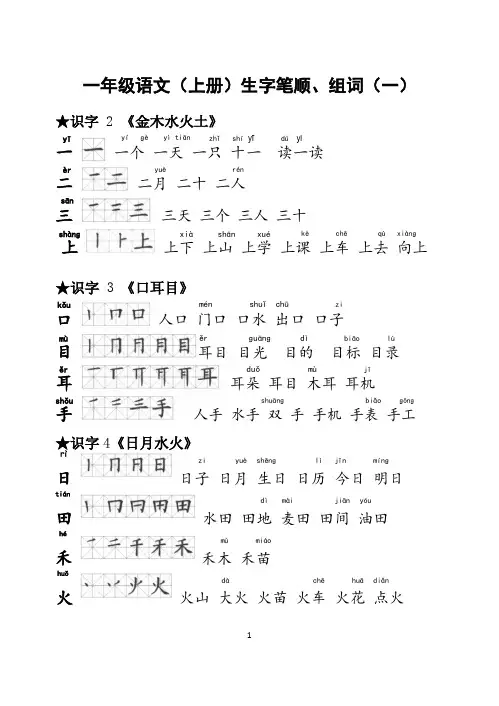 一年级语文（上册）生字笔顺、组词（一）
★识字 2 《金木水火土》
yī yí gè yì tiān zhī shí yī dú yì
一 一 一个 一天 一只 十一 读一读
èr yuè rén
二 二月 二十 二人
sān
三 三天 三个 三人 三十
shàng xià shān xué kè chē qù xiàng
上 上下 上山 上学 上课 上车 上去 向上
★识字 3 《口耳目》
kǒu mén shuǐ chū zi
口 人口 门口 口水 出口 口子
mù ěr guāng dì biāo lù
目 耳目 目光 目的 目标 目录
ěr duǒ mù jī
耳 耳朵 耳目 木耳 耳机
shǒu shuāng biǎo gōng
手 人手 水手 双 手 手机 手表 手工
★识字4《日月水火》
rì zi yuè shēng lì jīn míng
日 日子 日月 生日 日历 今日 明日
tián dì mài jiān yóu
田 水田 田地 麦田 田间 油田
hé mù miáo
禾 禾木 禾苗
huǒ dà chē huā diǎn
火 火山 大火 火苗 火车 火花 点火
1